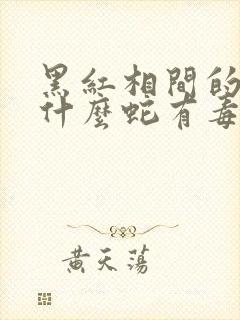 黑紅相間的
什麼蛇有毒
黃天蕩